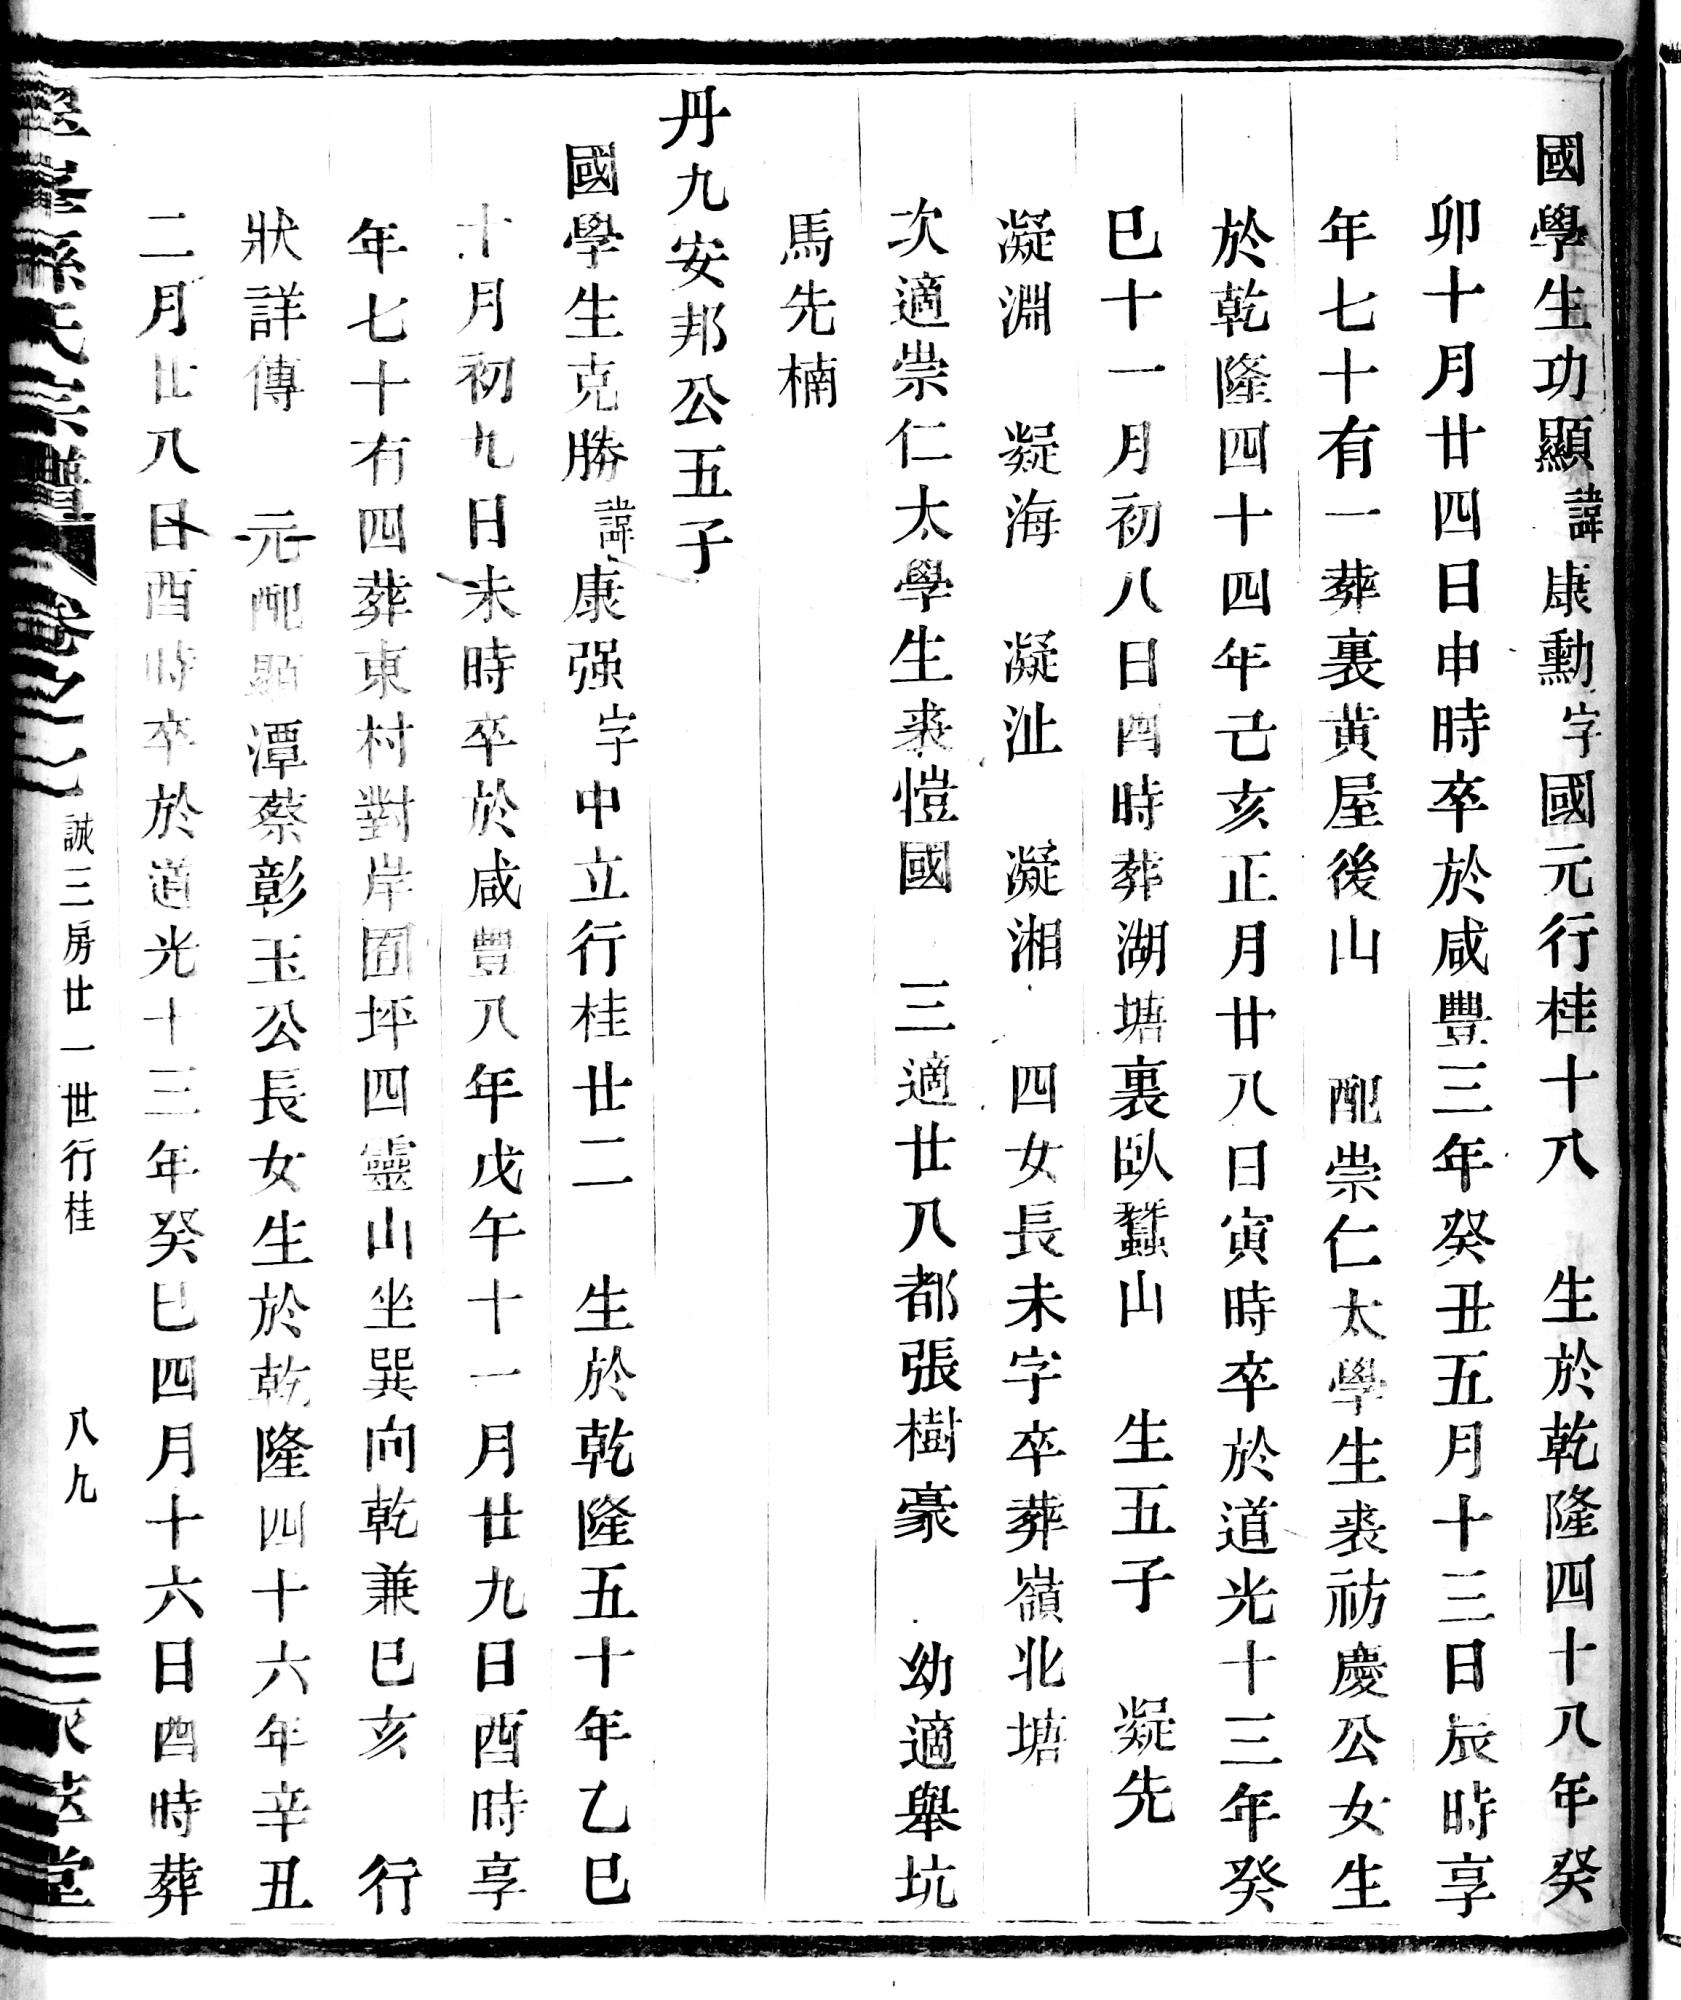 國學生功顯諱康勳字國元行桂十八　生於乾隆四十八年癸
卯十月廿四日申時卒於咸豐三年癸丑五月十三日辰時享
年七十有一葬裏黃屋後山　配崇仁太學生裘祊慶公女生
於乾隆四十四年己亥正月廿八日寅時卒於道光十三年癸
巳十一月初八日酉時葬湖塘裏臥蠶山　生五子　凝先
凝淵　凝海　凝沚　凝湘　四女長未字卒葬嶺北塘
次適崇仁太學生裘愷國　三適廿八都張樹豪　幼適舉坑
馬先楠
丹九安邦公五子
國學生克勝諱康强字中立行桂廿二　生於乾隆五十年乙巳
十月初九日未時卒於咸豐八年戊午十一月廿九日酉時享
年七十有四葬東村對岸囿坪四靈山坐巽向乾兼巳亥　行
狀詳傳　元配顯潭蔡彰玉公長女生於乾隆四十六年辛丑
二月廿八日酉時卒於道光十三年癸巳四月十六日酉時葬
孫氏宗譜　卷之　誠三房廿一世行桂　八九　堂